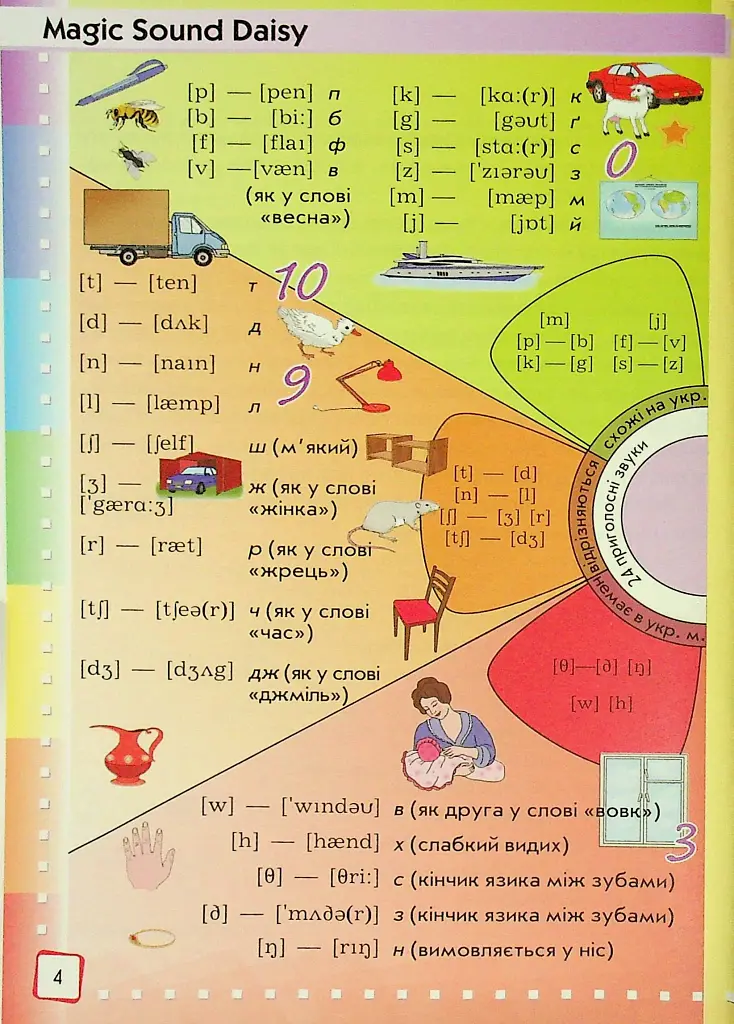 Magic Sound Daisy
[p] — [pen] п
[b] — [bi:] б
[f] — [flaɪ] ф
[v] —[væn] в
(як у слові
«весна»)
[k] — [kɑ:(r)] к
[g] — [gəʊt] ґ
[s] — [stɑ:(r)] с
[z] — ['zɪərəʊ] з
[m] — [mæp] м
[j] — [jɒt] й
0
[t] — [ten] т
10
[d] — [dʌk] д
[n] — [naɪn] н
9
[l] — [læmp] л
[ʃ] — [ʃelf] ш (м'який)
[ʒ] — ж (як у слові
['gærɑ:ʒ] «жінка»)
[r] — [ræt] р (як у слові
«жрець»)
[tʃ] — [tʃeə(r)] ч (як у слові
«час»)
[dʒ] — [dʒʌg] дж (як у слові
«джміль»)
[m] [j]
[p] — [b] [f] — [v]
[k] — [g] [s] — [z]
схожі на укр.
[t] — [d]
[n] — [l]
[ʃ] — [ʒ] [r]
[tʃ] — [dʒ]
відрізняються
24 приголосні звуки
немає в укр. м.
[θ]—[ð] [ŋ]
[w] [h]
[w] — ['wɪndəʊ] в (як друга у слові «вовк»)
3
[h] — [hænd] х (слабкий видих)
[θ] — [θri:] с (кінчик язика між зубами)
[ð] — ['mʌðə(r)] з (кінчик язика між зубами)
[ŋ] — [rɪŋ] н (вимовляється у ніс)
4